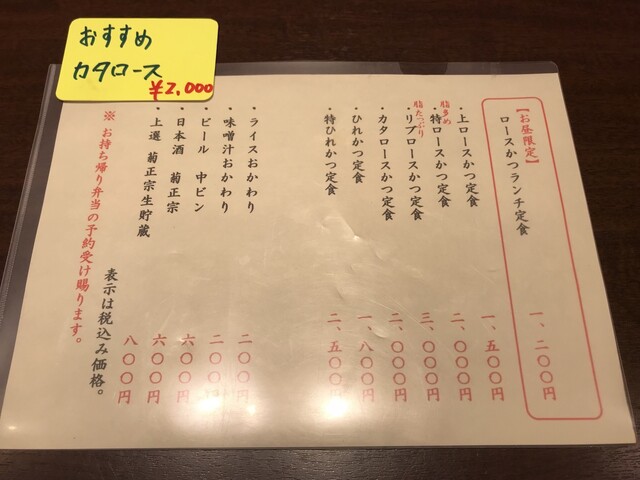 おすすめ
カタロース
¥2,000
【お昼限定】
ロースかつランチ定食 一、二〇〇円
・上ロースかつ定食 一、五〇〇円
脂多め
・特ロースかつ定食 二、〇〇〇円
脂たっぷり
・リブロースかつ定食 三、〇〇〇円
・カタロースかつ定食 二、〇〇〇円
・ひれかつ定食 一、八〇〇円
・特ひれかつ定食 二、五〇〇円
・ライスおかわり 二〇〇円
・味噌汁おかわり 二〇〇円
・ビール 中ビン 六〇〇円
・日本酒 菊正宗 六〇〇円
・上選 菊正宗生貯蔵 八〇〇円
表示は税込み価格。
※お持ち帰り弁当の予約受け賜ります。